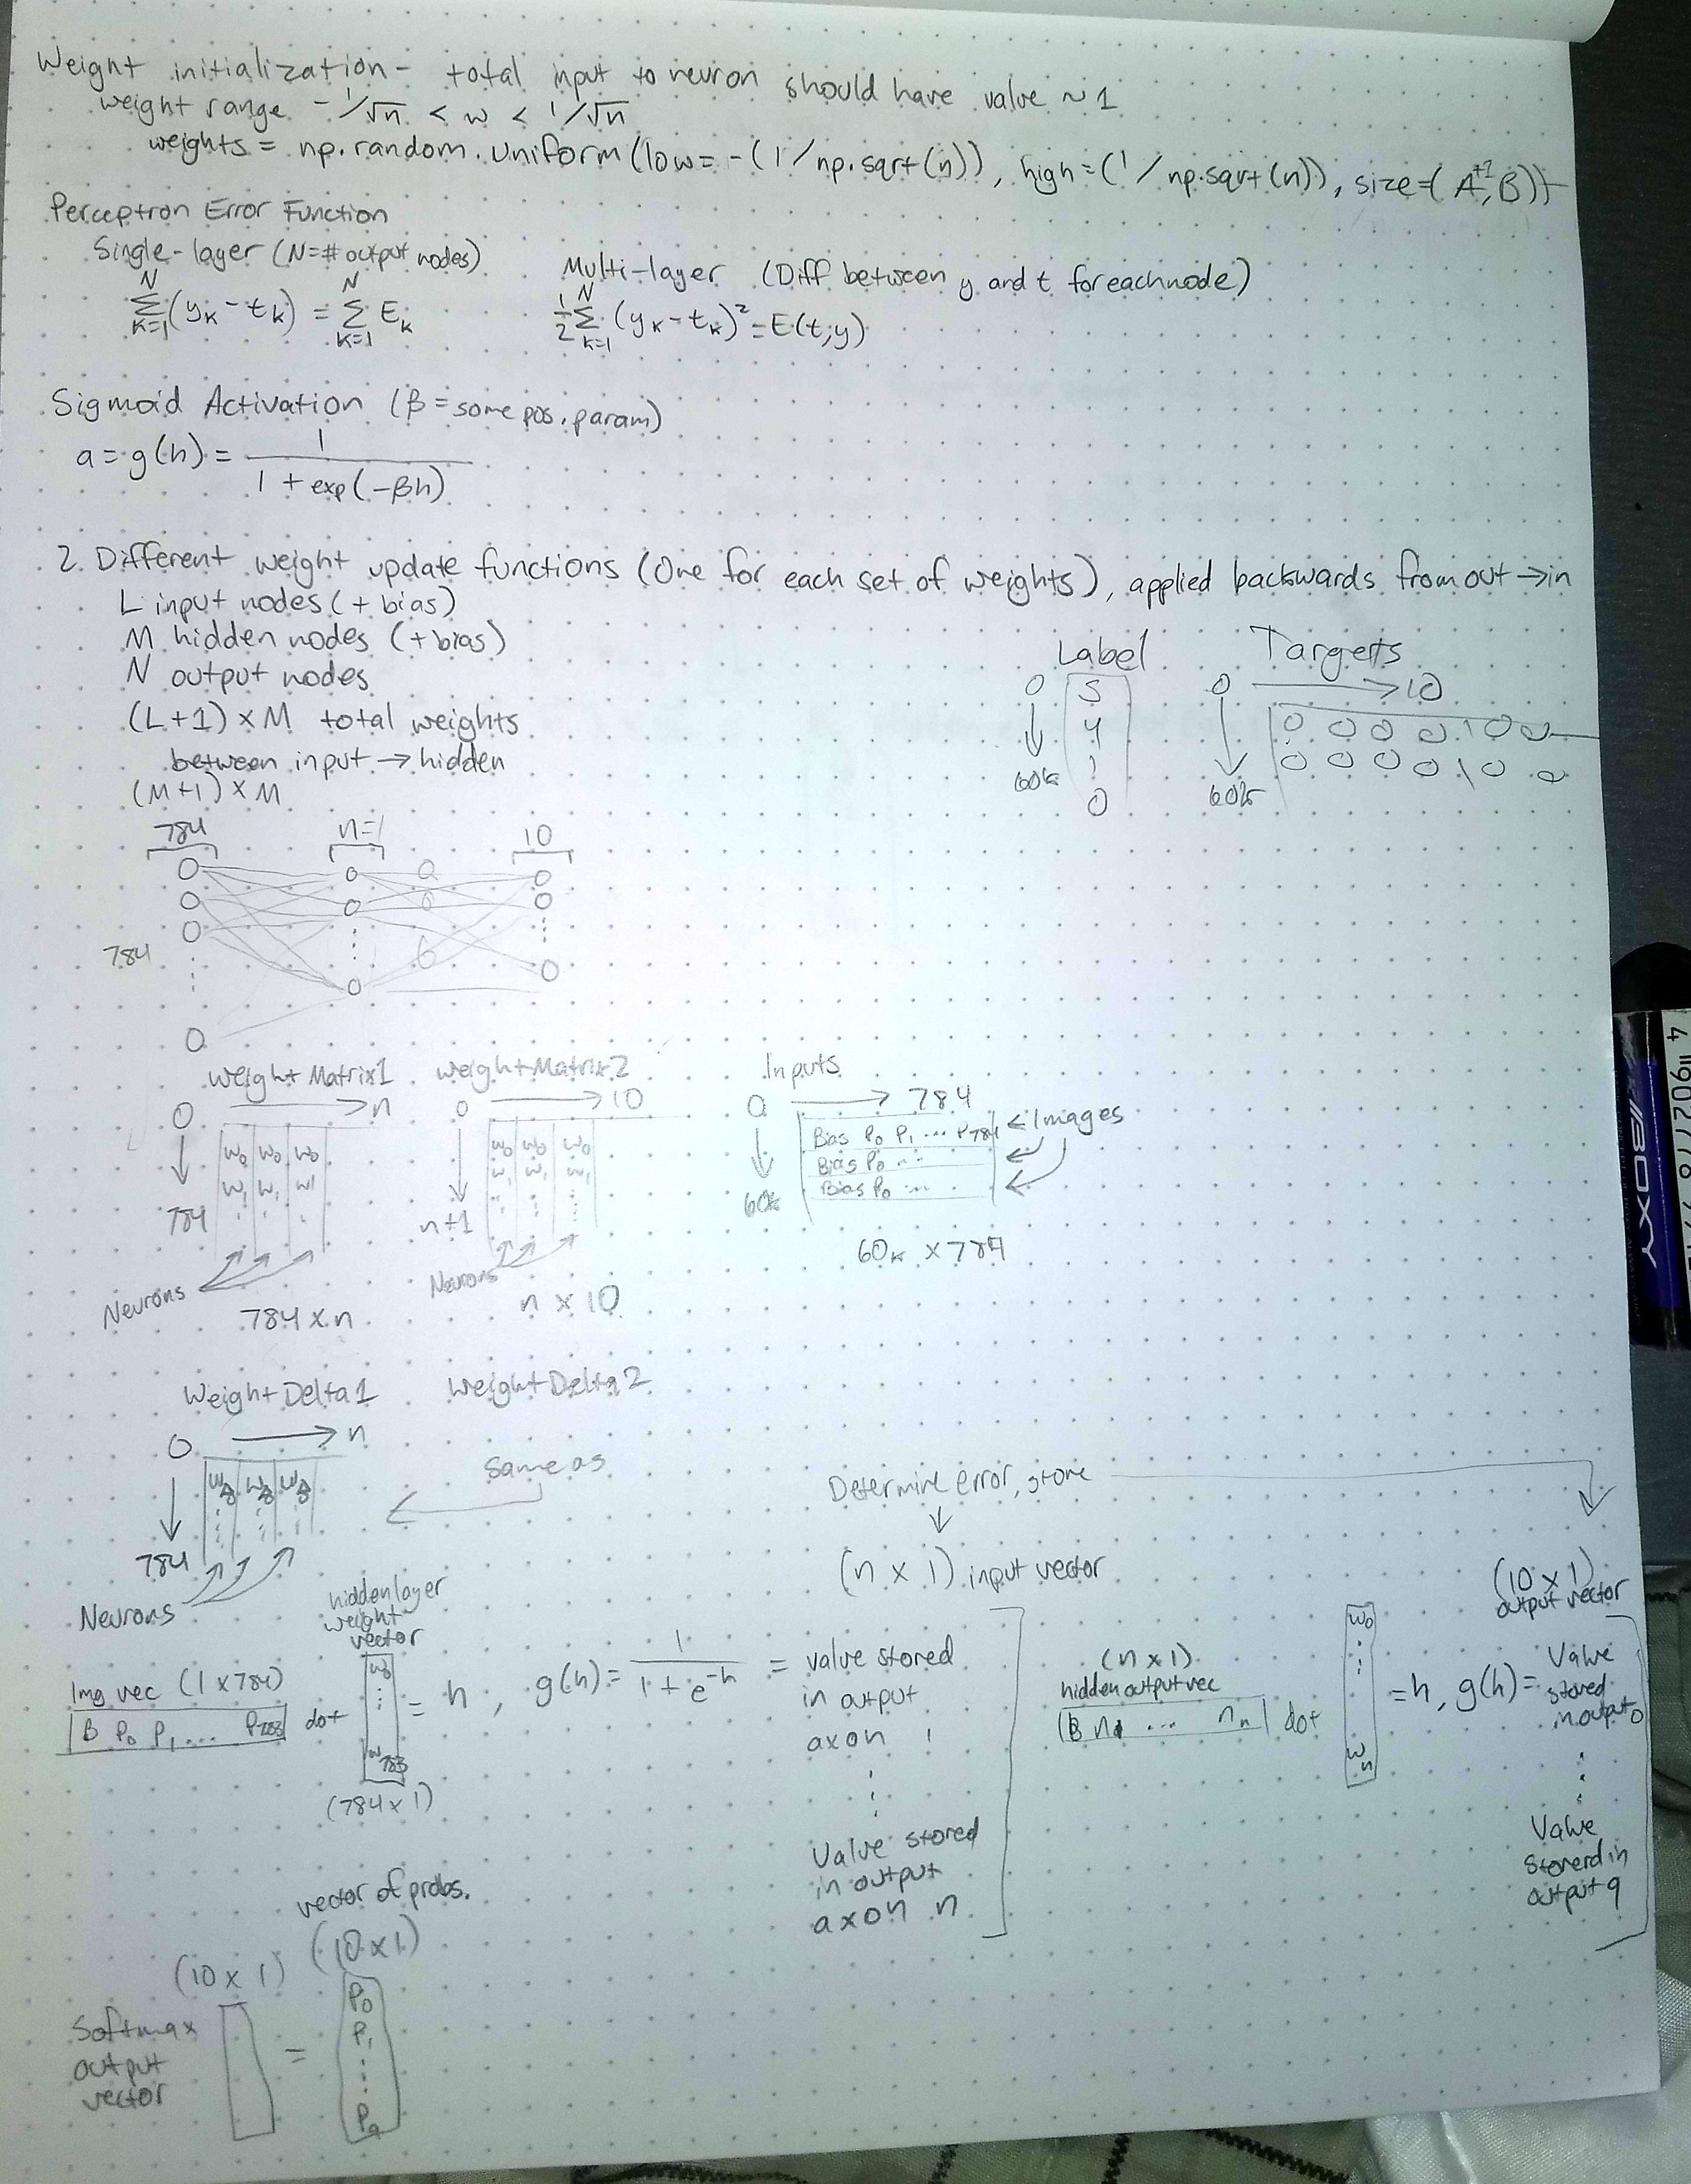 Weight initialization - total input to neuron should have value ~ 1
weight range -1/√n < w < 1/√n
weights = np.random.uniform(low=-(1/np.sqrt(n)), high=(1/np.sqrt(n)), size=(A+1,B))
Perceptron Error Function
Single-layer (N=# output nodes)
N Σ k=1 (yk - tk) = N Σ k=1 Ek
Multi-layer (Diff between y and t for each node)
1/2 N Σ k=1 (yk - tk)² = E(t,y)
Sigmoid Activation (β = some pos. param)
a = g(h) = 1 / 1 + exp(-βh)
2 Different weight update functions (One for each set of weights), applied backwards from out → in
L input nodes (+ bias)
M hidden nodes (+ bias)
N output nodes
(L+1) × M total weights
between input → hidden
(M+1) × M
Label
0 5
↓ 4
60k 1
0
Targets
0 → 10
0 0 0 0 1 0 0
↓ 0 0 0 0 1 0 0
60k
784 n=1 10
784
Weight Matrix1
0 → n
w0 w0 w0
↓ w1 w1 w1
784
Neurons
784 x n
Weight Matrix 2
0 → 10
w0 w0 w0
↓ w1 w1 w1
n+1
Neurons
n x 10
Inputs
0 → 784
Bias P0 P1 ... P784 ← Images
↓ Bias P0 ...
60k Bias P0 ...
60k x 784
Weight Delta1
0 → n
↓
784
Neurons
Weight Delta 2
Same as
Determine error, store
(n x 1) input vector
(10 x 1)
output vector
hidden layer
weight
vector
Img vec (1 x 784)
B P0 P1 ... P783 dot
w0
w783
(784 x 1)
= h, g(h) = 1 / 1 + e^-h = value stored
in output
axon 1
Value stored
in output
axon n
(n x 1)
hidden output vec
B n1 ... nn dot
w0
wn
= h, g(h) = Value
stored
in output 0
Value
storerd in
output 9
vector of probs.
(10 x 1) (10 x 1)
Softmax
output
vector
=
P0
P1
P9
4 902778
BOXY